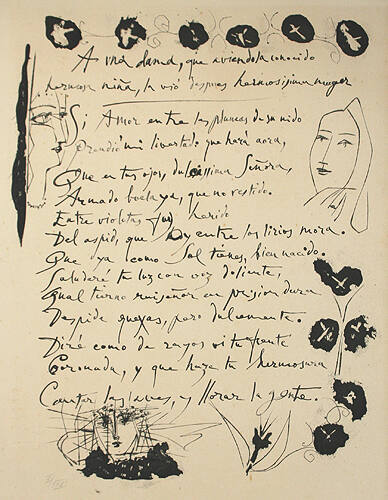 A una dama, que aviendola conocido
hermosa niña, la vió despues hermosissima muger
Si Amor entre las plumas de su nido
Prendió mi libertad, que hará aora,
Que en tus ojos, dulcissima Señora,
Armado buela ya, que no vestido.
Entre violetas fui herido
Del aspid, que oy entre los lirios mora.
Que ya como Sol tienes, bien nacido.
Saludaré tu luz con voz doliente,
Qual tierno ruiseñor en prision dura
Despide quexas, pero dulcemente.
Diré como de rayos vi tu frente
Coronada, y que haze tu hermosura
Cantar las aves, y llorar la gente.